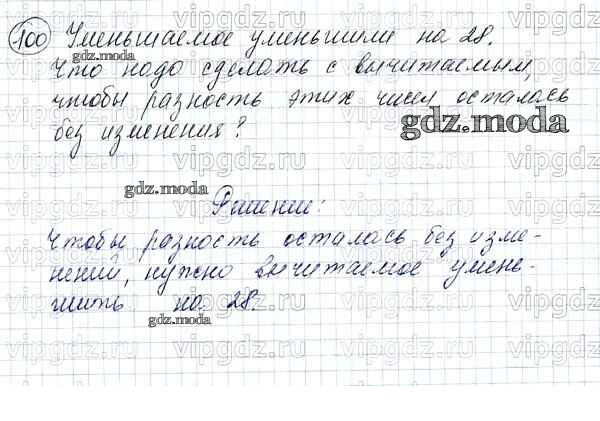 100 Уменьшаемое уменьшили на 28.
Что надо сделать с вычитаемым,
чтобы разность этих чисел осталась
без изменения?
gdz.moda
gdz.moda
gdz.moda
Решение:
Чтобы разность осталась без изме-
нений, нужно вычитаемое умень-
шить на 28.
gdz.moda